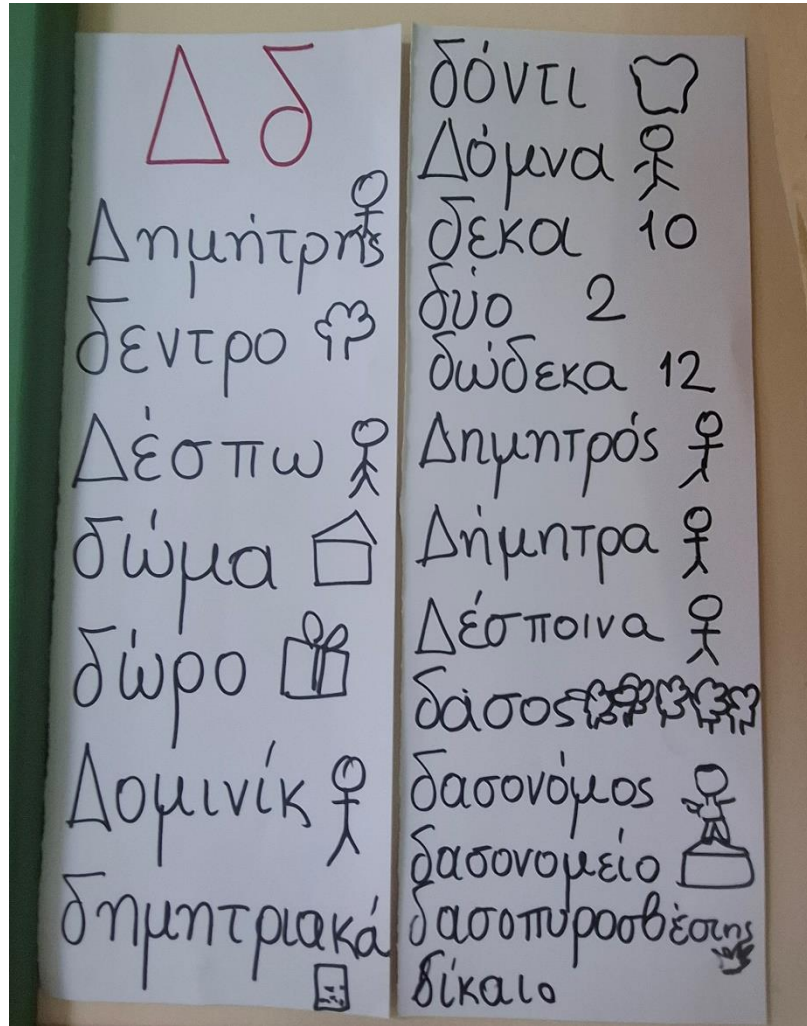 Δ δ
Δημήτρης
δεντρο
Δέσπω
δώμα
δώρο
Δομινίκ
δημητριακά
δόντι
Δόμνα
δεκα 10
δύο 2
δώδεκα 12
Δημητρός
Δήμητρα
Δέσποινα
δάσος
δασονόμος
δασονομείο
δασοπυροσβέστης
δίκαιο